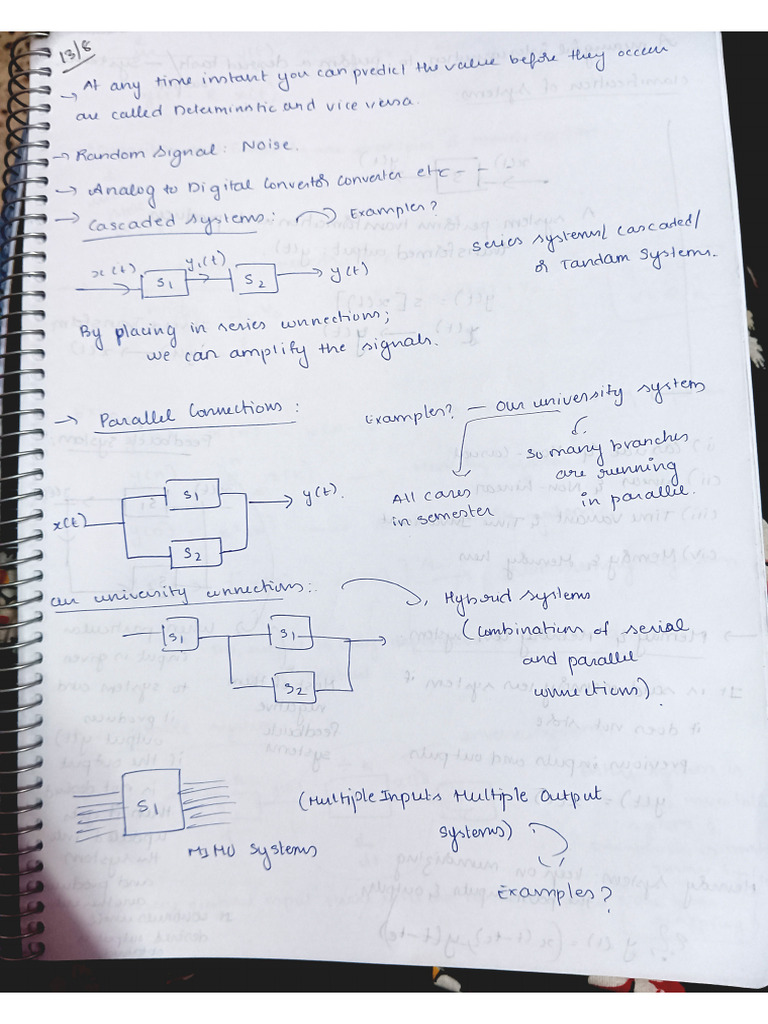 13/8
→ At any time instant you can predict the value before they occur
are called Deterministic and vice versa.
→ Random Signal: Noise.
→ Analog to Digital Convertor Converter etc
→ Cascaded Systems: Examples?
x(t) S1 y1(t) S2 y(t)
Series Systems/ Cascaded/
or Tandam Systems.
By placing in series connections;
we can amplify the signals.
→ Parallel Connections:
Examples? — Our university system
So many branches
are running
in parallel.
All cares
in semester
x(t) S1 S2 y(t).
our university connections:
Hybrid systems
(Combination of serial
and parallel
connections).
S1 S1
S2
S1
MIMO Systems
(Multiple Inputs Multiple Output
Systems)
Examples?